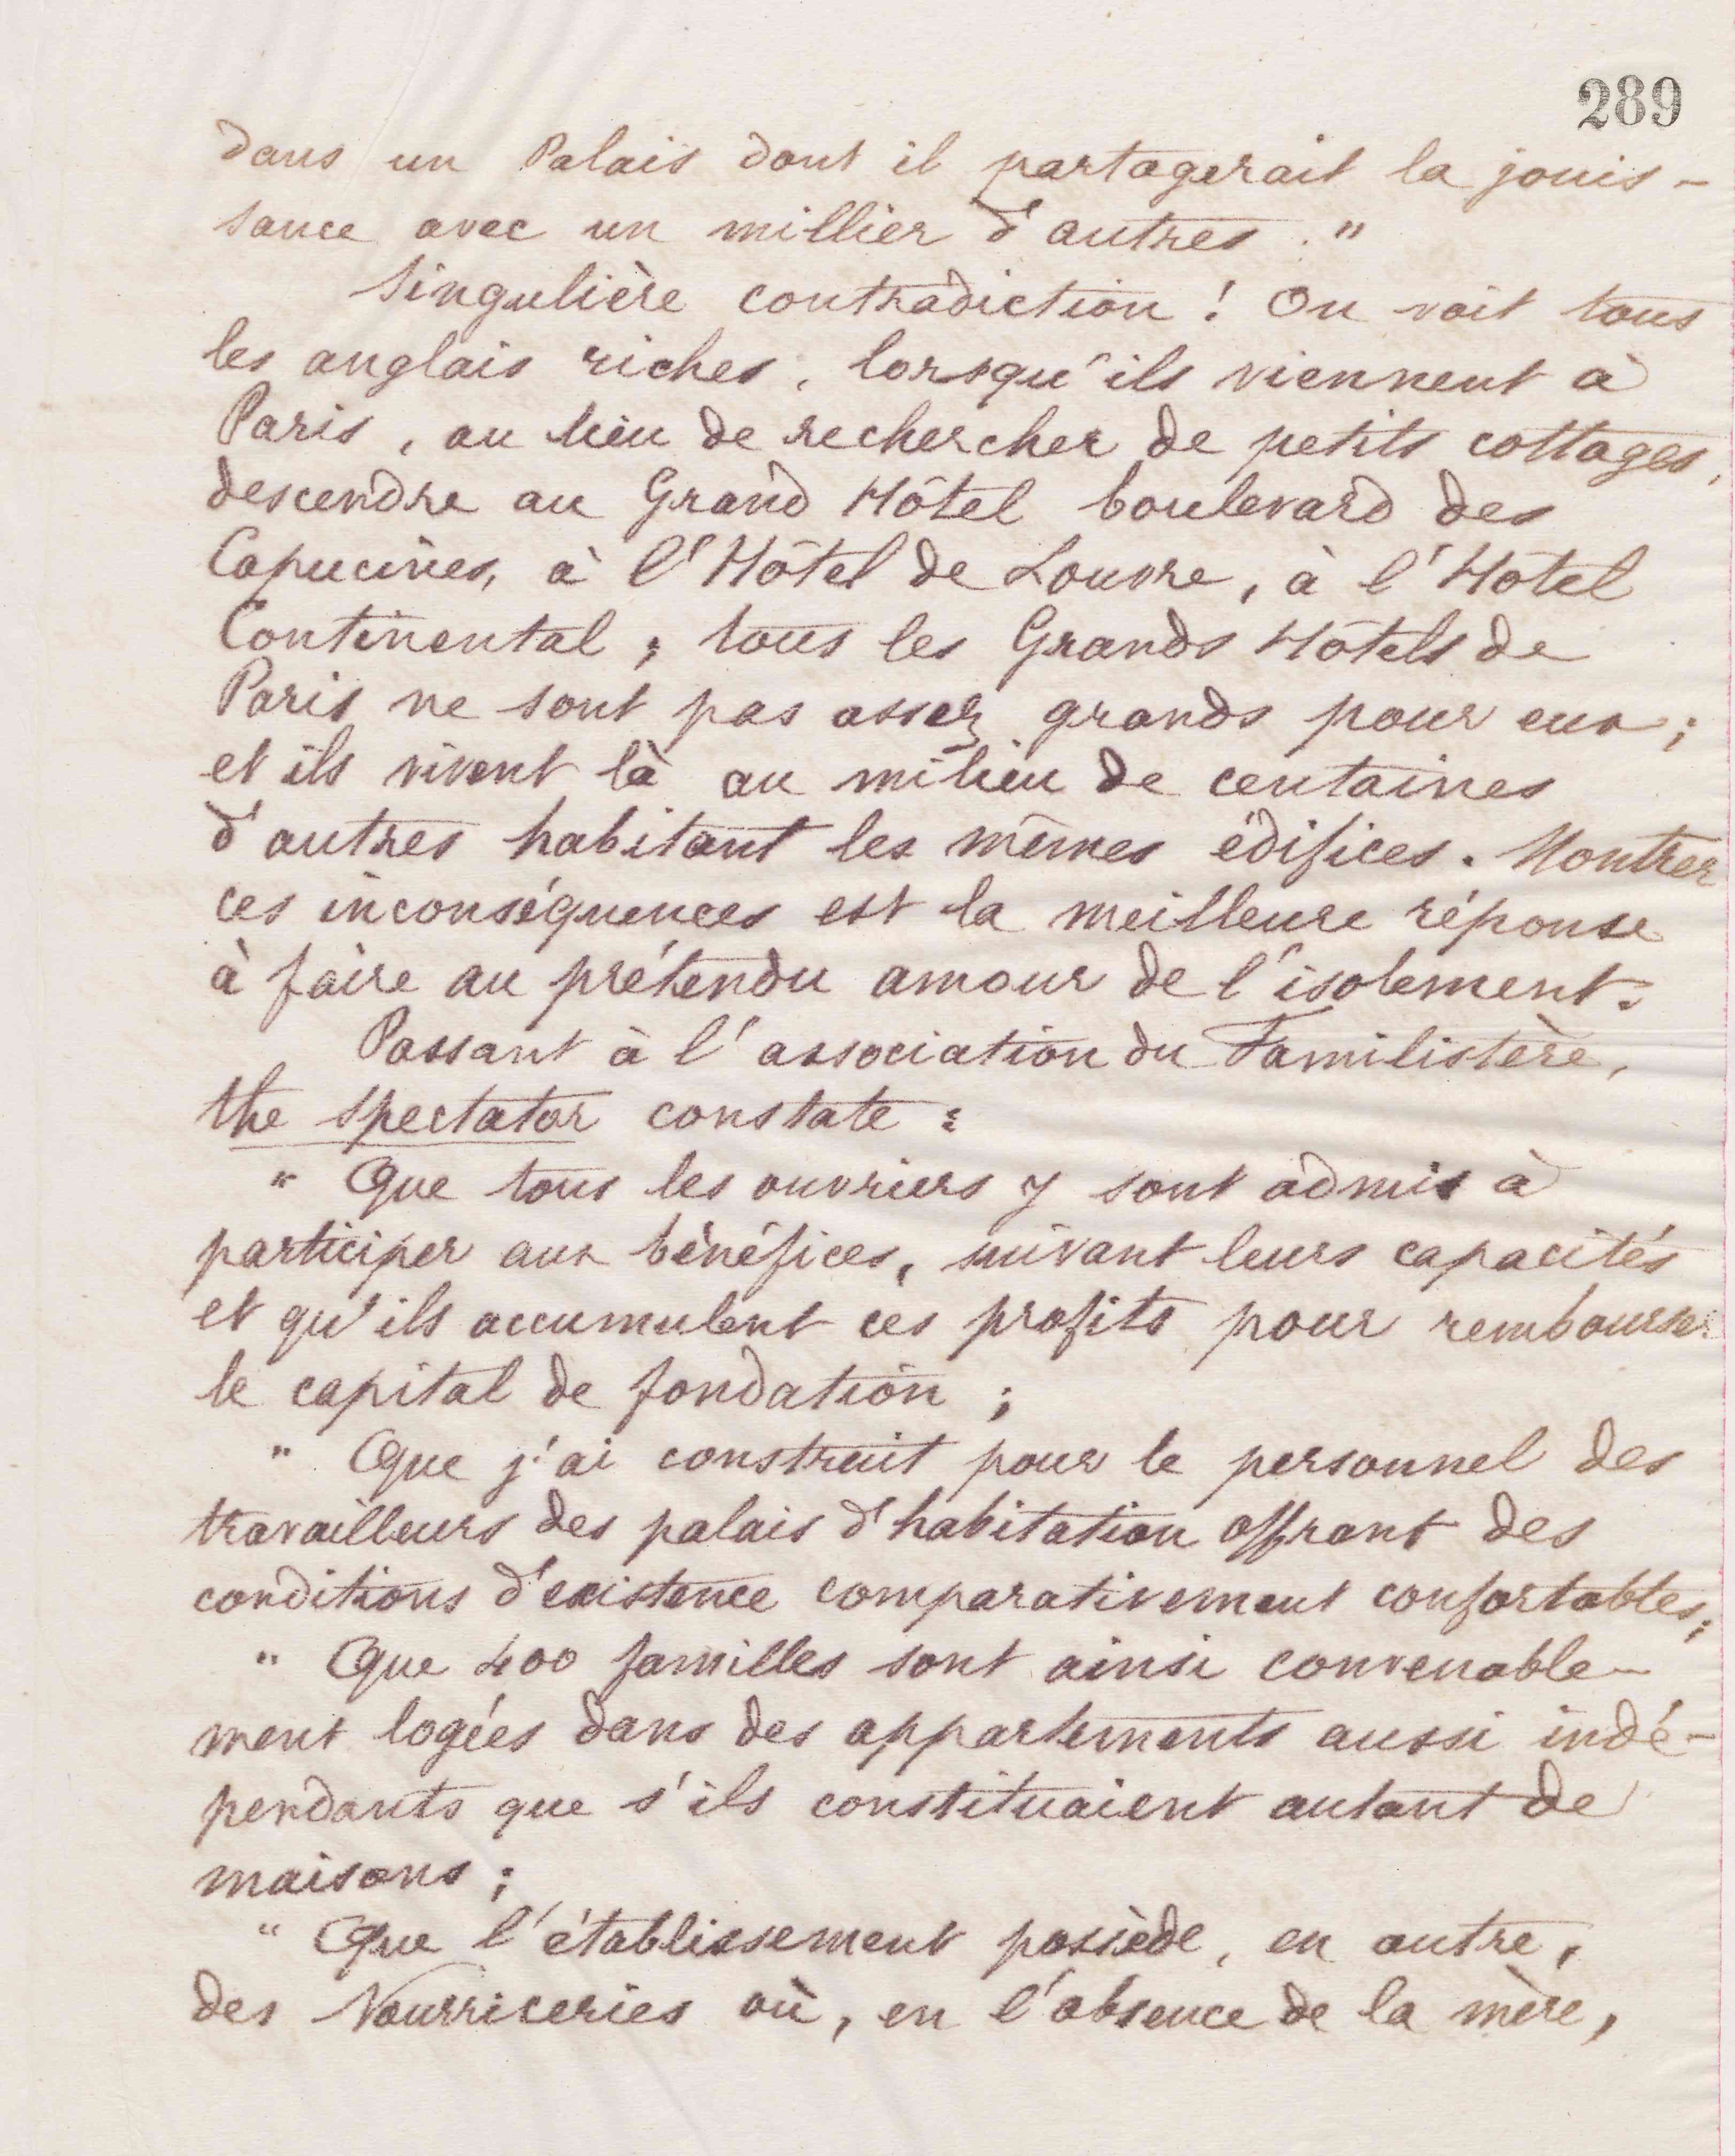 289
dans un Palais dont il partagerait la jouis-
sance avec un millier d'autres. "
Singulière contradiction ! On voit tous
les anglais riches, lorsqu'ils viennent à
Paris, au lieu de rechercher de petits cottages,
descendre au Grand Hôtel boulevard des
Capucines, à l'Hôtel de Louvre, à l'Hôtel
Continental ; tous les Grands Hôtels de
Paris ne sont pas assez grands pour eux ;
et ils vivent là au milieu de centaines
d'autres habitant les mêmes édifices. Montrer
ces inconséquences est la meilleure réponse
à faire au prétendu amour de l'isolement.
Passant à l'association du Familistère,
the Spectator constate :
" Que tous les ouvriers y sont admis à
participer aux bénéfices, suivant leurs capacités
et qu'ils accumulent ces profits pour rembourser
le capital de fondation ;
" Que j'ai construit pour le personnel des
travailleurs des palais d'habitation offrant des
conditions d'existence comparativement confortables ;
" Que 400 familles sont ainsi convenable-
ment logées dans des appartements aussi indé-
pendants que s'ils constituaient autant de
maisons ;
" Que l'établissement possède, en outre,
des Nourriceries où, en l'absence de la mère,